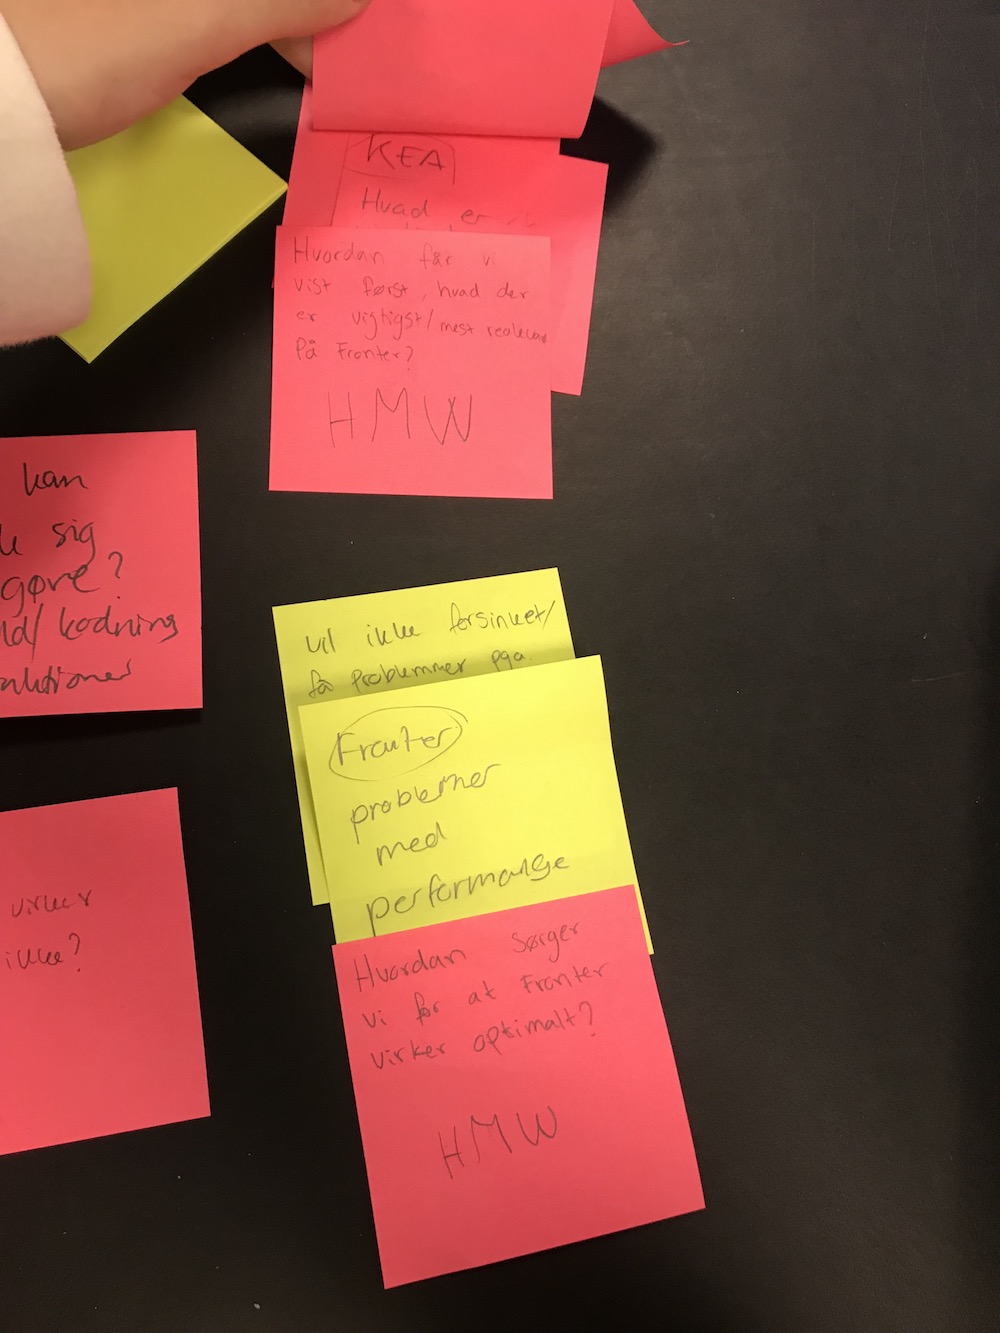 KEA
Hvad er
Hvordan får vi
vist først, hvad der
er vigtigst/mest
på Fronter?
HMW
kan
sig
gøre?
kodning
vil ikke forsinket/
få problemmer pga.
Fronter
problemer
med
performance
virker
ikke?
Hvordan sørger
vi for at Fronter
virker optimalt?
HMW